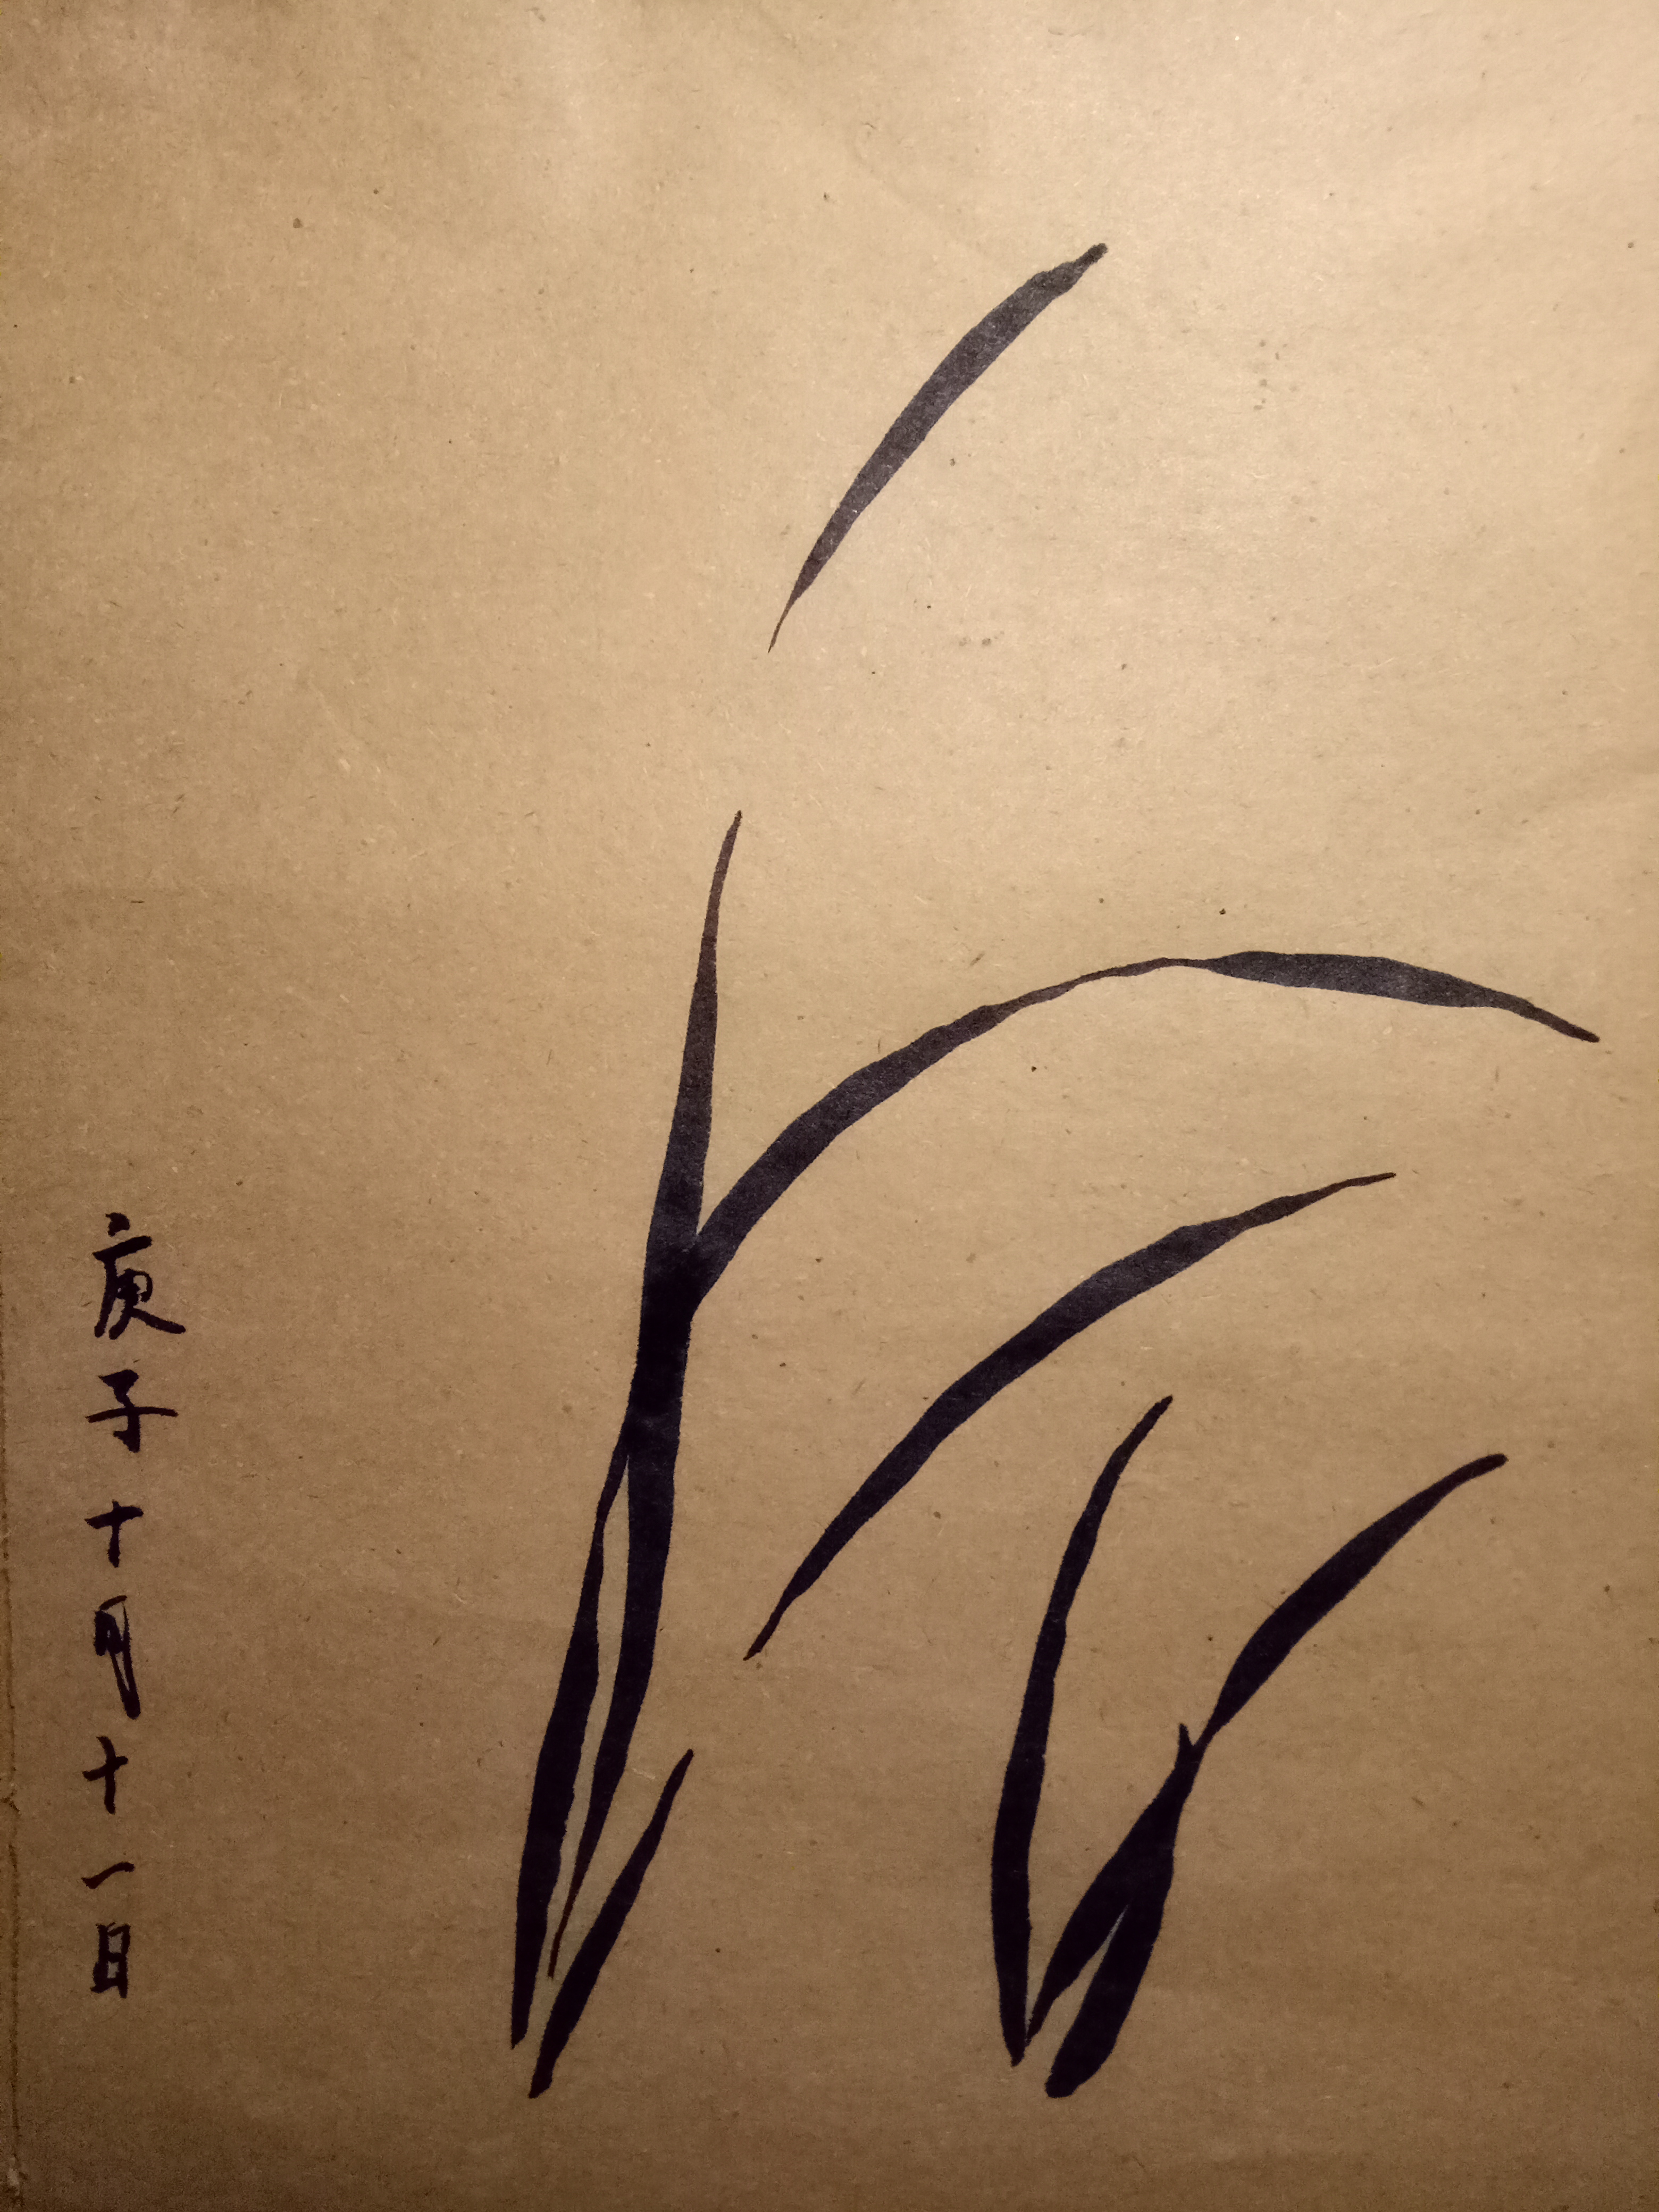 庚子十月十一日